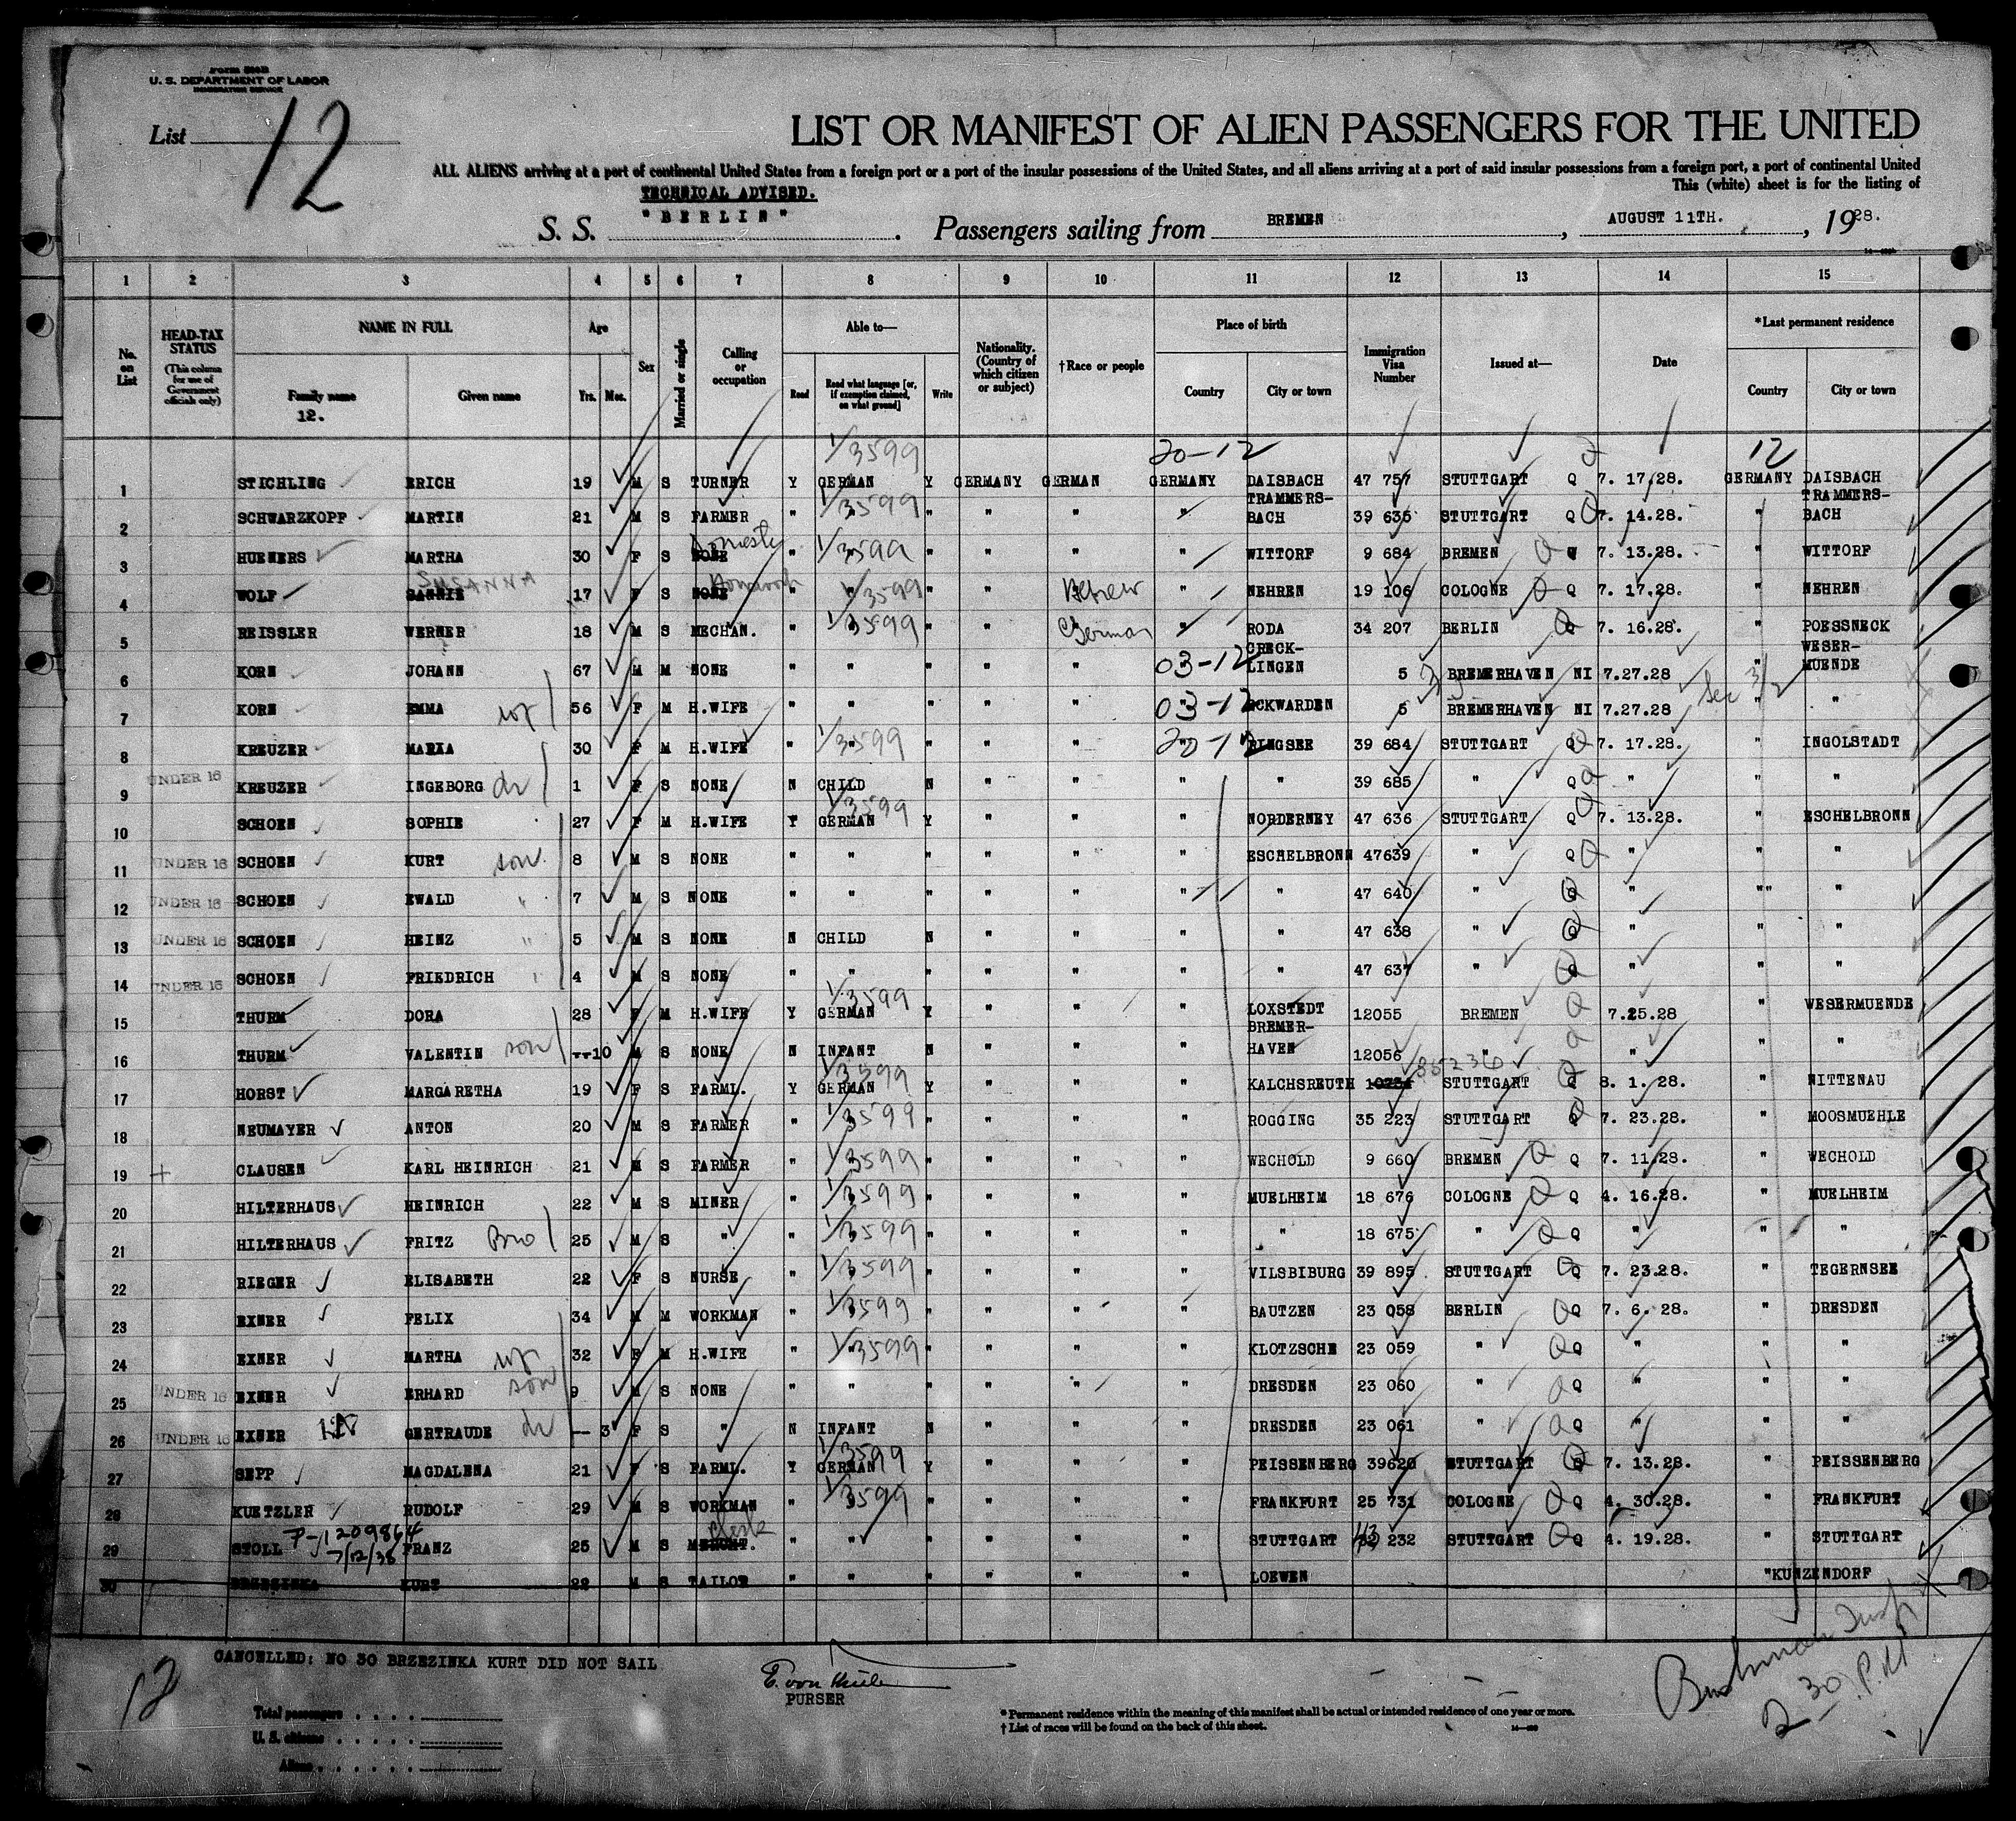 Form 500B
U. S. DEPARTMENT OF LABOR
IMMIGRATION SERVICE
List 12
LIST OR MANIFEST OF ALIEN PASSENGERS FOR THE UNITED
ALL ALIENS arriving at a port of continental United States from a foreign port or a port of the insular possessions of the United States, and all aliens arriving at a port of said insular possessions from a foreign port, a port of continental United
This (white) sheet is for the listing of
TECHNICAL ADVISED.
S. S. "BERLIN". Passengers sailing from BREMEN, AUGUST 11TH., 1928.
1 2 3 4 5 6 7 8 9 10 11 12 13 14 15
No. on List
HEAD-TAX STATUS
(This column for use of Government officials only)
NAME IN FULL
Family name
12.
Given name
Age
Yrs. Mos.
Sex
Married or single
Calling or occupation
Able to—
Read
Read what language [or, if exemption claimed, on what ground]
Write
Nationality. (Country of which citizen or subject)
†Race or people
Place of birth
Country
City or town
Immigration Visa Number
Issued at—
Date
*Last permanent residence
Country
City or town
1/3599 20-12 12
1 STICHLING ERICH 19 M S TURNER Y GERMAN Y GERMANY GERMAN GERMANY DAISBACH 47 757 STUTTGART Q 7. 17.28. GERMANY DAISBACH
1/3599 TRAMMERS- TRAMMERS-
2 SCHWARZKOPF MARTIN 21 M S FARMER " " " " " " BACH 39 635 STUTTGART Q 7. 14.28. " BACH
Domestic
3 HUENERS MARTHA 30 F S NONE " 1/3599 " " " " WITTORF 9 684 BREMEN Q 7. 13.28. " WITTORF
SUSANNA
4 WOLF SANNIE 17 F S NONE " " 1/3599 " " Hebrew " NEHREN 19 106 COLOGNE Q 7. 17.28. " NEHREN
5 REISSLER WERNER 18 M S MECHAN. " 1/3599 " " German " RODA 34 207 BERLIN Q 7. 16.28. " POESSNECK
CRECK- WESER-
6 KORN JOHANN 67 M M NONE " " " " " 03-12 LINGEN 5 BREMERHAVEN NI 7.27.28 Sec 3/2 MUENDE
7 KORN EMMA wf 56 F M H.WIFE " " " " " 03-12 ECKWARDEN 6 BREMERHAVEN NI 7.27.28 " "
8 KREUZER MARIA 30 F M H.WIFE " 1/3599 " " " 20-12 RINGSEE 39 684 STUTTGART Q 7. 17.28. " INGOLSTADT
9 UNDER 16 KREUZER INGEBORG dr 1 F S NONE N CHILD N " " " " 39 685 " Q " " "
1/3599
10 SCHOEN SOPHIE 27 F M H.WIFE Y GERMAN Y " " " NORDERNEY 47 636 STUTTGART Q 7. 13.28. " ESCHELBRONN
11 UNDER 16 SCHOEN KURT son 8 M S NONE " " " " " " ESCHELBRONN 47639 " Q " " "
12 UNDER 16 SCHOEN EWALD " 7 M S NONE " " " " " " " 47 640 " Q " "" "
13 UNDER 16 SCHOEN HEINZ " 5 M S NONE N CHILD N " " " " 47 638 " Q " " "
14 UNDER 16 SCHOEN FRIEDRICH " 4 M S NONE " " " " " " " 47 637 " Q " " "
1/3599
15 THURM DORA 28 F M H.WIFE Y GERMAN Y " " " LOXSTEDT 12055 BREMEN Q 7.25.28 " WESERMUENDE
BREMER-
16 THURM VALENTIN son --10 M S NONE N INFANT N " " " HAVEN 12056 " Q " " "
1/3599 35236
17 HORST MARGARETHA 19 F S FARML. Y GERMAN Y " " " KALCHSREUTH STUTTGART Q 8. 1. 28. " NITTENAU
18 NEUMAYER ANTON 20 M S FARMER " 1/3599 " " " " ROGGING 35 223 STUTTGART Q 7. 23.28. " MOOSMUEHLE
19 + CLAUSEN KARL HEINRICH 21 M S FARMER " 1/3599 " " " " WECHOLD 9 660 BREMEN Q Q 7. 11.28. " WECHOLD
20 HILTERHAUS HEINRICH 22 M S MINER " 1/3599 " " " " MUELHEIM 18 676 COLOGNE Q Q 4. 16.28. " MUELHEIM
21 HILTERHAUS FRITZ Bro 25 M S " " 1/3599 " " " " " 18 675 " Q Q " " "
22 RIEGER ELISABETH 22 F S NURSE " 1/3599 " " " " VILSBIBURG 39 895 STUTTGART Q Q 7. 23.28. " TEGERNSEE
23 EXNER FELIX 34 M M WORKMAN " 1/3599 " " " " BAUTZEN 23 058 BERLIN Q Q 7. 6. 28. " DRESDEN
24 EXNER MARTHA wf 32 F M H.WIFE " 1/3599 " " " " KLOTZSCHE 23 059 " Q Q " " "
25 UNDER 16 EXNER ERHARD son 9 M S NONE " " " " " " DRESDEN 23 060 " Q Q " " "
26 UNDER 16 EXNER GERTRAUDE dr -- 3 F S " N INFANT N " " " DRESDEN 23 061 " Q Q " " "
1/3599
27 SEPP MAGDALENA 21 F S FARML. Y GERMAN Y " " " PEISSENBERG 39620 STUTTGART Q 7. 13.28. " PEISSENBERG
28 KUETZLER RUDOLF 29 M S WORKMAN " 1/3599 " " " " FRANKFURT 25 731 COLOGNE Q Q 4. 30.28. " FRANKFURT
P-J1209864 Clerk
29 STOLL 7/12/38 FRANZ 25 M S MECHT. " " " " " " STUTTGART 43 232 STUTTGART Q Q 4. 19.28. " STUTTGART
30 BRZEZINKA KURT 22 M S TAILOR " " " " " " LOEWEN "KUNZENDORF
CANCELLED: NO 30 BRZEZINKA KURT DID NOT SAIL
12
PURSER
Total passengers . . . .
U. S. citizens . . . . .
Aliens . . . . . .
* Permanent residence within the meaning of this manifest shall be actual or intended residence of one year or more.
† List of races will be found on the back of this sheet.
Bushman Insp
2 30 P.M